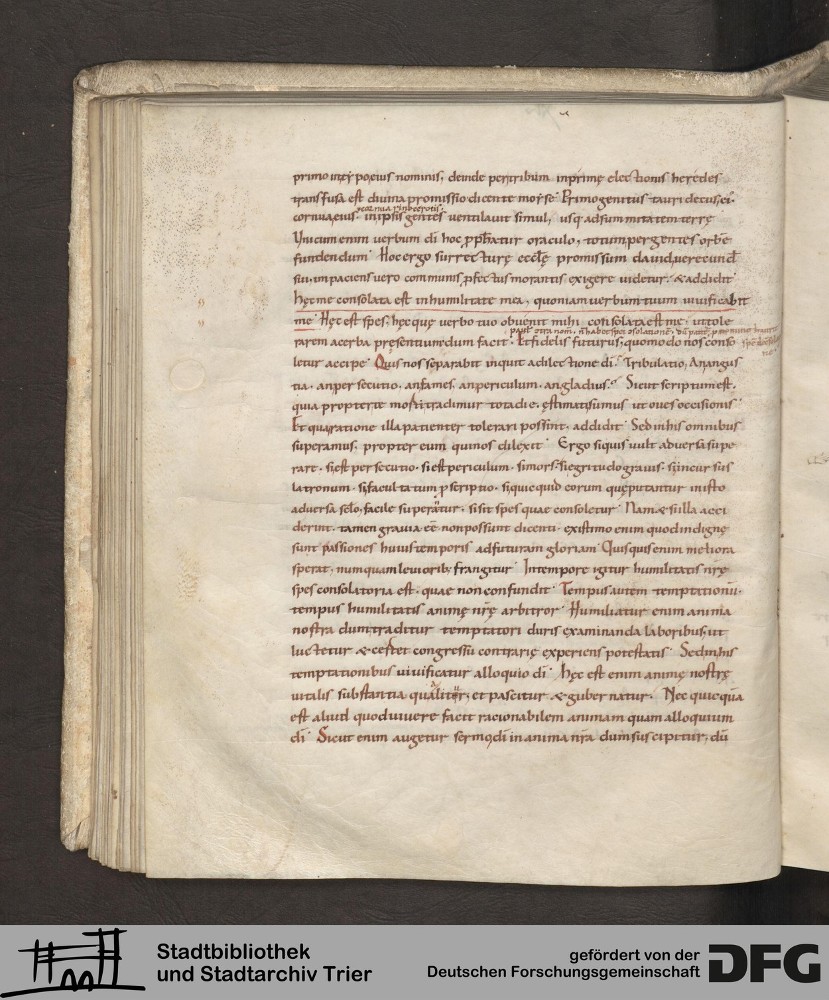 primo nominis, deinde per tribum inprimę electionis heredes
transfusa est diuina promissio dicente moyse Primogenitus tauri decus ei.
cornua eius. in ipsis gentes uentilauit simul, usq ad summitatem terrę
Vnicum enim uerbum di hoc pphatur oraculo, totum per gentes orbē
fundendum Hoc ergo surrecturę ecclę promissum dauid uerecund
sui, impaciens uero communis pfectus morantis exigere uidetur. & addidit
hęc me consolata est in humilitate mea, quoniam uerbum tuum uiuificabit
me Hęc est spes, hęc quę uerbo tuo obuenit mihi consolata est me ut tole
rarem acerba presentium dum facit. Et fidelis futurus, quomodo nos conso
letur accipe Quis nos separabit inquit a dilectione di Tribulatio, An angus
tia. an persecutio. an fames. an periculum. an gladius. Sicut scriptum est.
quia propter te mortı tradimur tota die. ęstimati sumus ut oues occisionis
Et qua ratione illa patienter tolerari possint. addidit Sed in his omnibus
superamus. propter eum qui nos dilexit Ergo siquis uult aduersa supe
rare. si est persecutio. si est periculum. si mors. si egritudo grauis. si incursus
latronum. si facultatum pscriptio. si quicquid eorum quę putantur in isto
aduersa sclo, facile superatur. si sit spes quae consoletur Nam & si illa acci
derint. tamen grauia eē non possunt dicenti. existimo enim quod indignę
sunt passiones huius temporis ad futuram gloriam Quisquis enim meliora
sperat. numquam leuiorib; frangitur In tempore igitur humilitatis nrę
spes consolatoria est. quae non confundit Tempus autem temptationū.
tempus humilitatis animę nrę arbitror Humiliatur enim anima
nostra dum traditur temptatori duris examinanda laboribus, ut
luctetur & certet congressu contrarię experiens potestatis Sed in his
temptationibus uiuificatur alloquio di Hęc est enim animę nostrę
uitalis substantia qua alitur, et pascitur & gubernatur. Nec quicquā
est aliud quod uiuere facit racionabilem animam quam alloquium
di Sicut enim augetur sermo di in anima nra dum suscipitur, dū
Stadtbibliothek
und Stadtarchiv Trier
gefördert von der
Deutschen Forschungsgemeinschaft
DFG